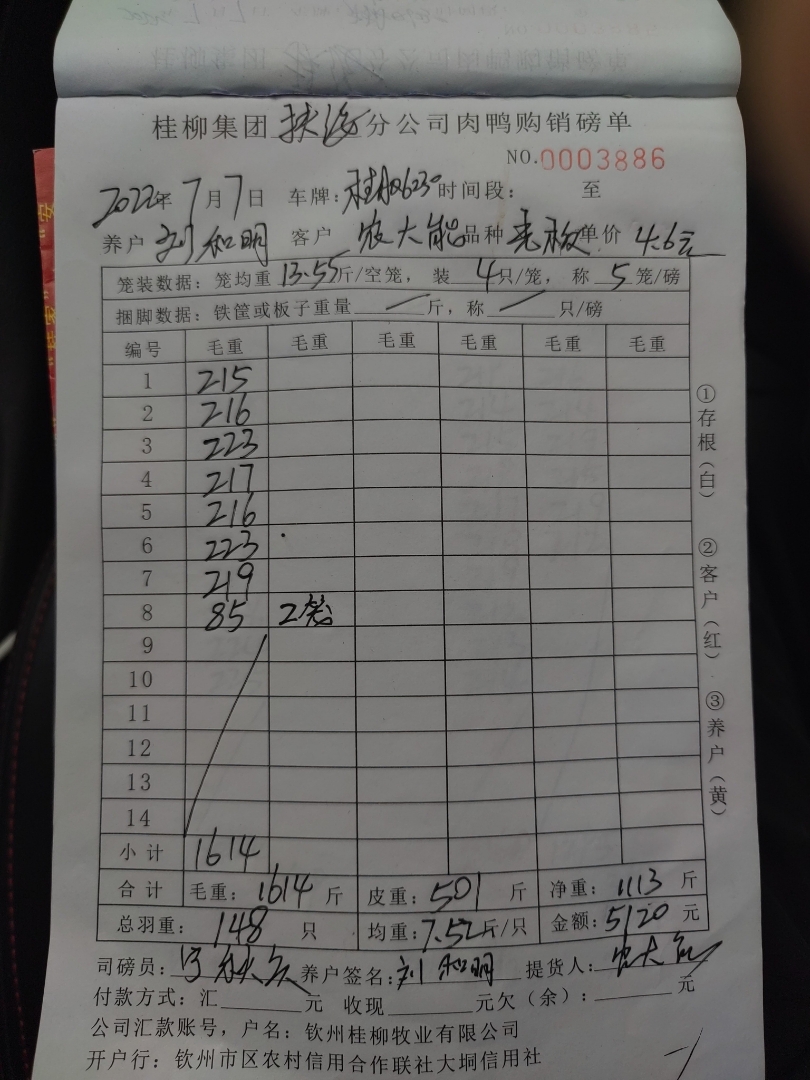 桂柳集团 扶海 分公司肉鸭购销磅单
NO.0003886
2022年7月7日 车牌: 时间段: 至
养户 刘和明 客户 农大能 品种 单价 4.6元
笼装数据: 笼均重 13.55斤/空笼, 装 4只/笼, 称 5笼/磅
捆脚数据: 铁筐或板子重量 / 斤, 称 / 只/磅
编号 毛重 毛重 毛重 毛重 毛重 毛重
1 215
2 216
3 223
4 217
5 216
6 223
7 219
8 85 2笼
9
10
11
12
13
14
小计 1614
合计 毛重: 1614 斤 皮重: 501 斤 净重: 1113 斤
总羽重: 148 只 均重: 7.52斤/只 金额: 5120 元
司磅员: 养户签名: 刘和明 提货人: 农大能
付款方式: 汇 元 收现 元欠(余): 元
公司汇款账号, 户名: 钦州桂柳牧业有限公司
开户行: 钦州市区农村信用合作联社大垌信用社
①存根(白) ②客户(红) ③养户(黄)